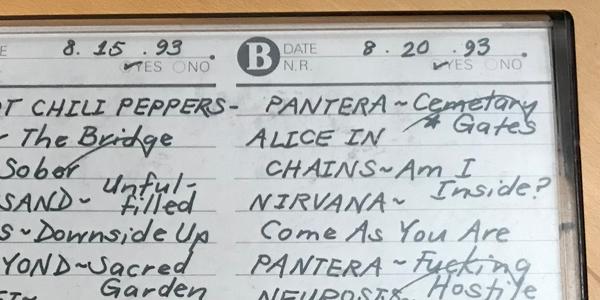 E 8. 15 .93
YES NO
OT CHILI PEPPERS-
The Bridge
Sober
SAND~ Unful-
filled
S~Downside Up
YOND~Sacred
Garden
B DATE 8. 20 .93
N.R. YES NO
PANTERA~Cemetary
Gates
ALICE IN
CHAINS~Am I
Inside?
NIRVANA~
Come As You Are
PANTERA~Fucking
Hostile
NEUROSIS